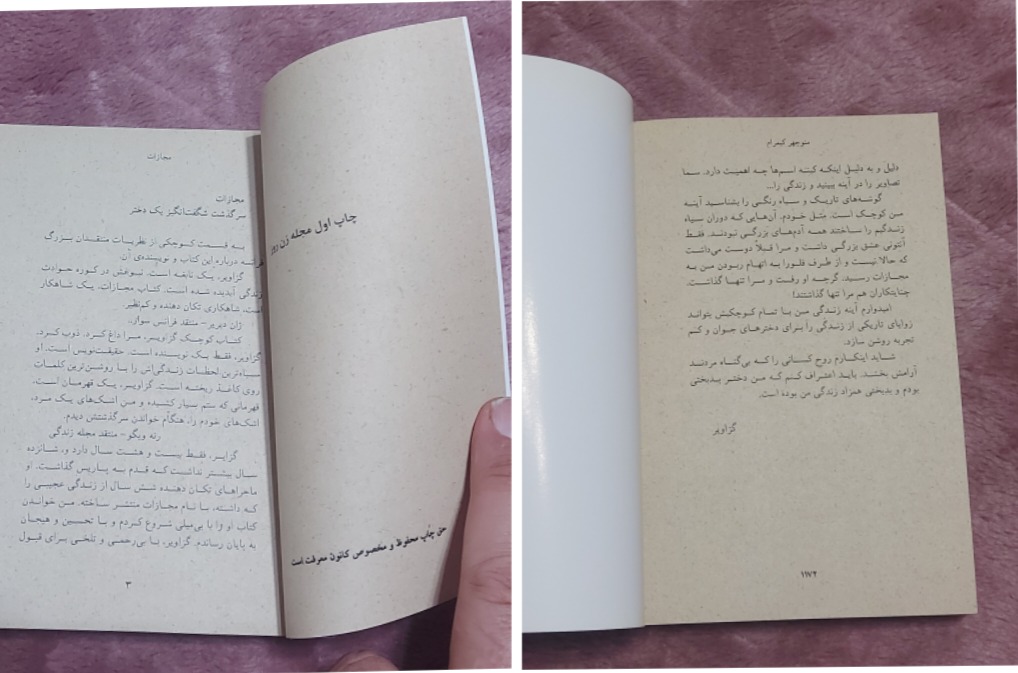 مجازات
مجازات
سرگذشت شگفت‌انگیز یک دختر
به قسمت کوچکی از نظریات منتقدان بزرگ
درباره این کتاب و نویسنده‌ی آن.
گزاویر، یک نابغه است. نبوغش در کوره حوادث
زندگی آبدیده شده است. کتاب مجازات، یک شاهکار
است، شاهکاری تکان دهنده و کم‌نظیر.
ژان دیریر – منتقد فرانس سوار..
کتاب کوچک گزاویر، مرا داغ کرد. ذوب کرد.
گزاویر، فقط یک نویسنده است. حقیقت‌نویس است. او
سیاه‌ترین لحظات زندگی‌اش را با روشن‌ترین کلمات
روی کاغذ ریخته است. گزاویر، یک قهرمان است.
قهرمانی که ستم بسیار کشیده و من اشک‌های یک مرد،
اشک‌های خودم را، هنگام خواندن سرگذشتش دیدم.
رنه ویگو – منتقد مجله زندگی
گزایر، فقط بیست و هشت سال دارد و، شانزده
سال بیشتر نداشت که قدم به پاریس گذاشت. او
ماجراهای تکان دهنده شش سال از زندگی عجیبی را
که داشته، با نام مجازات منتشر ساخته. من خواندن
کتاب او را با بی‌میلی شروع کردم و با تحسین و هیجان
به پایان رساندم. گزاویر، با بی‌رحمی و تلخی برای قبول
۳
چاپ اول مجله زن روز
حق چاپ محفوظ و مخصوص کانون معرفت است
منوچهر کیمرام
دلیل و به دلیل اینکه کینه اسم‌ها چه اهمیت دارد. شما
تصاویر را در آینه ببینید و زندگی را...
گوشه‌های تاریک و سیاه رنگی را بشناسید آینه
من کوچک است. مثل خودم. آن‌هایی که دوران سیاه
زندگیم را ساختند همه آدم‌های بزرگی نبودند. فقط
آنتونی عشق بزرگی داشت و مرا قبلاً دوست می‌داشت
که حالا نیست و از طرف فلورا به اتهام ربودن من به
مجازات رسید. گرچه او رفت و مرا تنها گذاشت.
جنایتکاران هم مرا تنها گذاشتند!
امیدوارم آینه زندگی من با تمام کوچکیش بتواند
زوایای تاریکی از زندگی را برای دخترهای جوان و کم
تجربه روشن سازد.
شاید اینکارم روح کسانی را که بی‌گناه مردند
آرامش بخشد. باید اعتراف کنم که من دختر بدبختی
بودم و بدبختی همزاد زندگی من بوده است.
گزاویر
۱۱۷۲